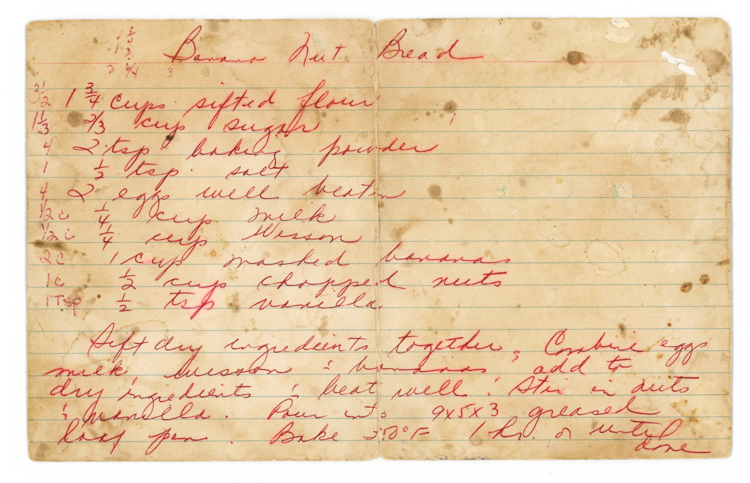 Banana Nut Bread
3 1/2 1 3/4 cups sifted flour
1 1/3 2/3 cup sugar
4 2 tsp baking powder
1 1/2 tsp. salt
4 2 eggs well beaten
1/2 c 1/4 cup milk
1/2 c 1/4 cup Wesson
2c 1 cup mashed bananas
1c 1/2 cup chopped nuts
1 Tsp 1/2 tsp vanilla
Sift dry ingredients together, Combine eggs
milk, wesson & bananas add to
dry ingredients & beat well. Stir in nuts
& vanilla. Pour into 9x5x3 greased
loaf pan. Bake 350°F 1 hr. or until
done